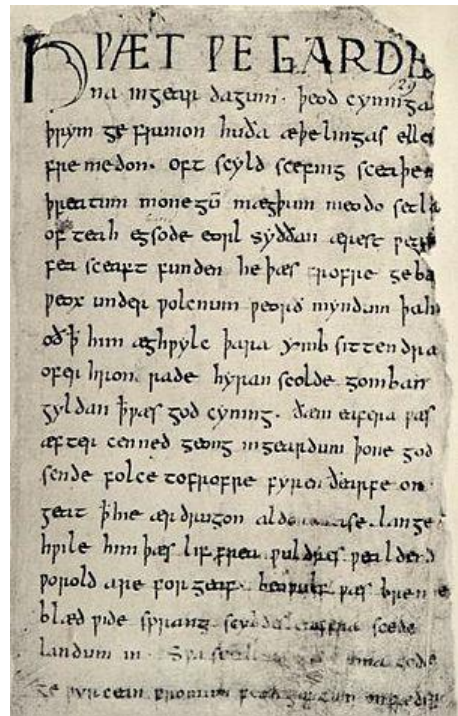 HǷÆT ǷE GARDE
129
na ingear dagum. þeod cyninga
þrym ge frunon huða æþelingas elle
fre medon. oft scyld scefing sceaþe
þreatum monegū mægþum meodo setla
of teah egsode eorl syððan ærest
fea sceaft funden he þæs frofre geba
ƿeox under ƿolcnum ƿeorð myndum þah
oð ꝥ him æghƿylc þara ymb sittendra
ofer hron rade hyran scolde gomban
gyldan ꝥ ƿæs god cyning. ðæm eafera ƿæs
æfter cenned geong ingeardum þone god
sende folce tofrofre fyren ðearfe on
geat ꝥ hie ær drugon lange
hƿile him þæs lif frea ƿuldres ƿealdend
ƿorold are for geaf. beoƿulf ƿæs breme
blæd ƿide sprang scyldes eafera scede
landum in. Sƿa sceal guma gode
ge ƿyrcean fromum feoh giftum